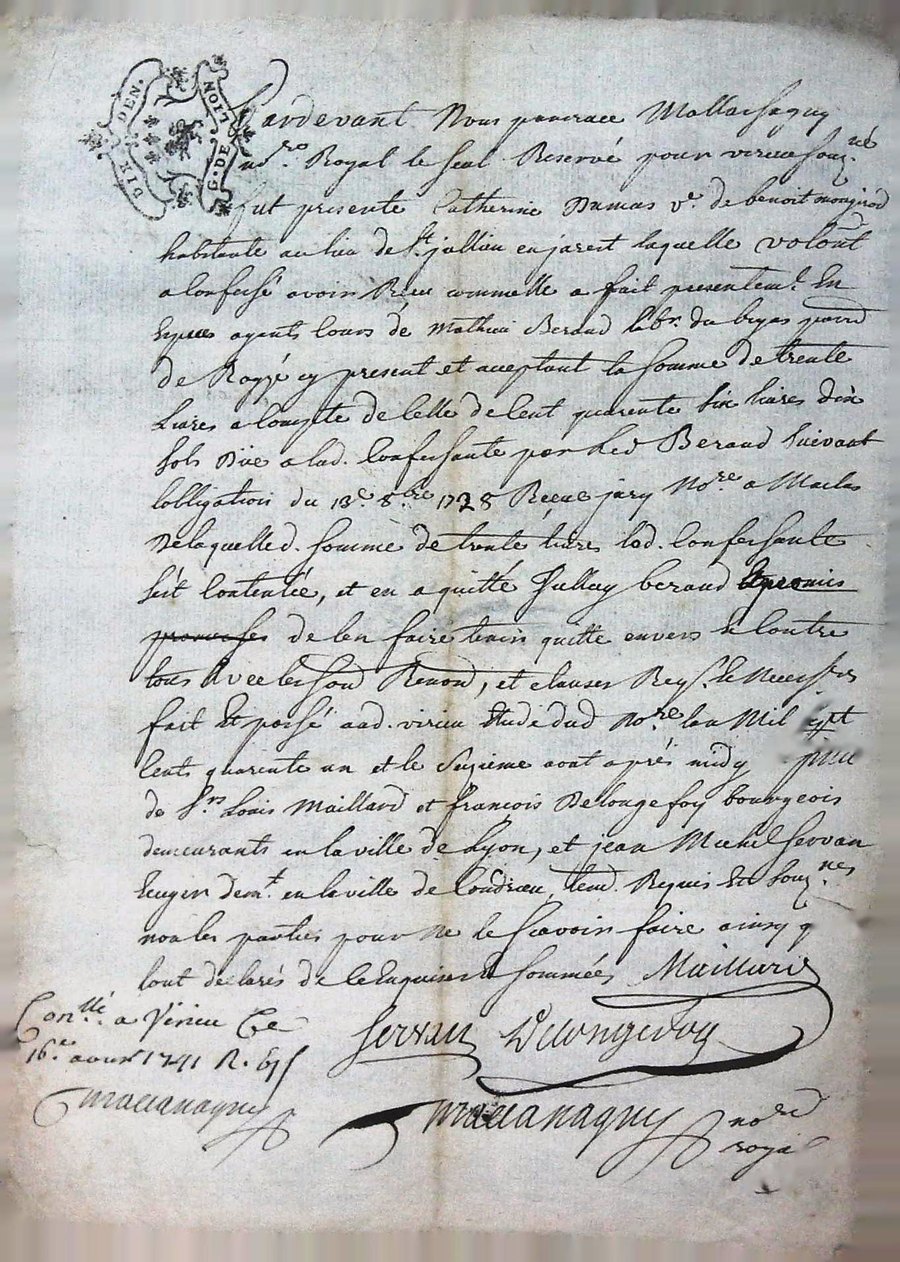 DIX DEN.
G. DE LION
Pardevant Nous pancrace Mallassagny
no.re Royal le seul Reservé pour virieu souz.né
fut presente Catherine Dumas v.e de benoit monginod
habitante au lieu de St. jullien en jarest laquelle volont
a Confessé avoir Receu commelle a fait presentem.t En
Especes agents Cours de Mathieu Beraud lab.r du paroid
de Roysé cy present et aceptant la somme de trente
Livres a Compte de Celle de Cent quarente six livres dix
sols Düe a lad. Confessante par led Beraud suivant
lobligation du 13.e 8.bre 1738 Receue jary No.re a Maclas
De laquelle d. somme de trente livres lad. Confessante
sést Contentée, et en a quitté beraud
promesses de len faire tenir quitte envers et Contre
tous Avec les Renon.d, et clauses Req.s le Necess.res
fait Et passé aud. virieu Etude dud No.re lan Mil sept
Cents quarente un et le seizieme aout aprés midy
de S.rs Louis Maillard et françois Delongefoy bourgeois
demeurants en la ville de Lyon, et jean Michel Servan
Ecuyer dem.t en la ville de Condrieu, tem.d Requis Et souz.nes
non les parties pour ne le sçavoir faire ainsy q
lont declarés de ce Enquises et sommées Maillard
Con.llé a Virieu Ce
16.e aoust 1741 R. 6 s
Servan Delongefoy
mallanagny
mallanagny no.re
royal